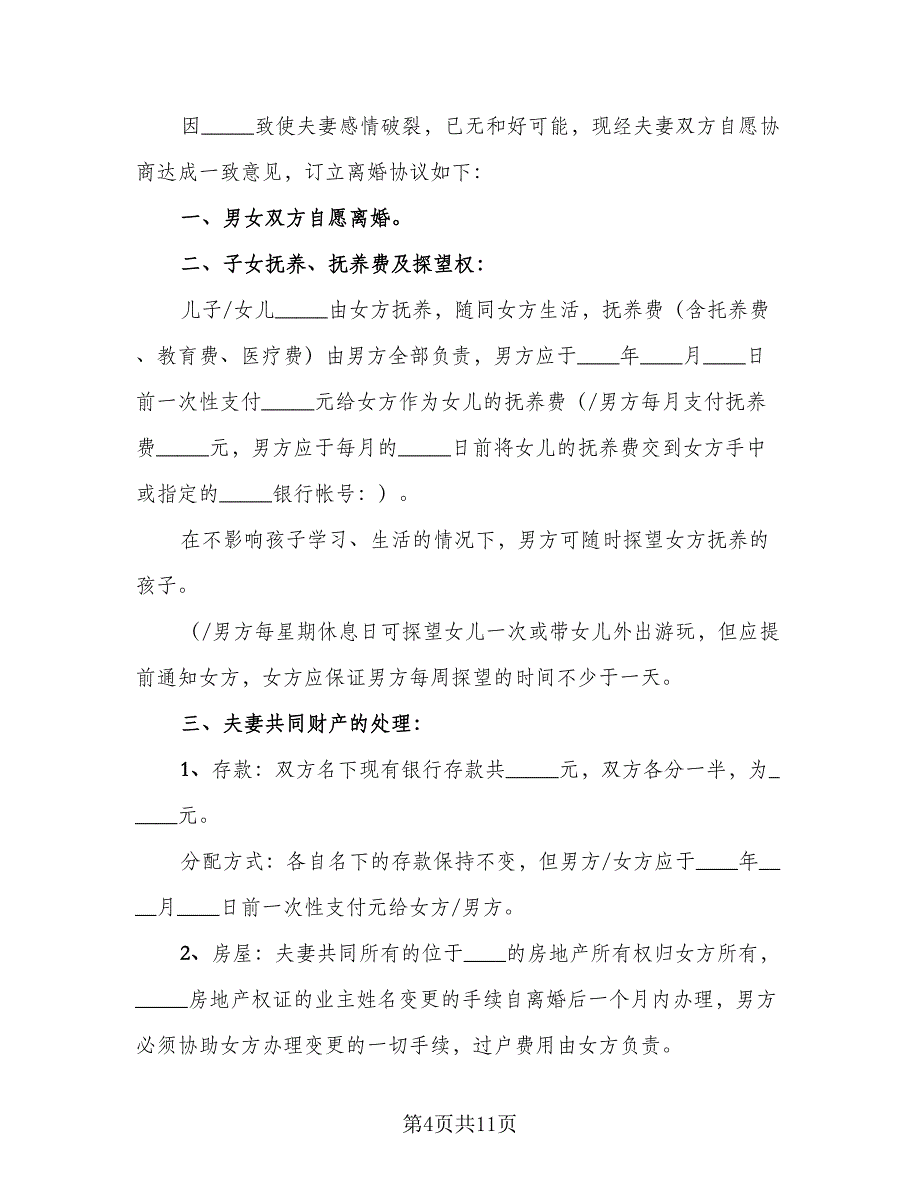 因_____致使夫妻感情破裂，已无和好可能，现经夫妻双方自愿协
商达成一致意见，订立离婚协议如下：
一、男女双方自愿离婚。
二、子女抚养、抚养费及探望权：
儿子/女儿_____由女方抚养，随同女方生活，抚养费（含托养费
、教育费、医疗费）由男方全部负责，男方应于____年____月____日
前一次性支付_____元给女方作为女儿的抚养费（/男方每月支付抚养
费_____元，男方应于每月的_____日前将女儿的抚养费交到女方手中
或指定的_____银行帐号：）。
在不影响孩子学习、生活的情况下，男方可随时探望女方抚养的
孩子。
（/男方每星期休息日可探望女儿一次或带女儿外出游玩，但应提
前通知女方，女方应保证男方每周探望的时间不少于一天。
三、夫妻共同财产的处理：
1、存款：双方名下现有银行存款共_____元，双方各分一半，为_
____元。
分配方式：各自名下的存款保持不变，但男方/女方应于____年__
__月____日前一次性支付元给女方/男方。
2、房屋：夫妻共同所有的位于____的房地产所有权归女方所有，
_____房地产权证的业主姓名变更的手续自离婚后一个月内办理，男方
必须协助女方办理变更的一切手续，过户费用由女方负责。
第4页共11页